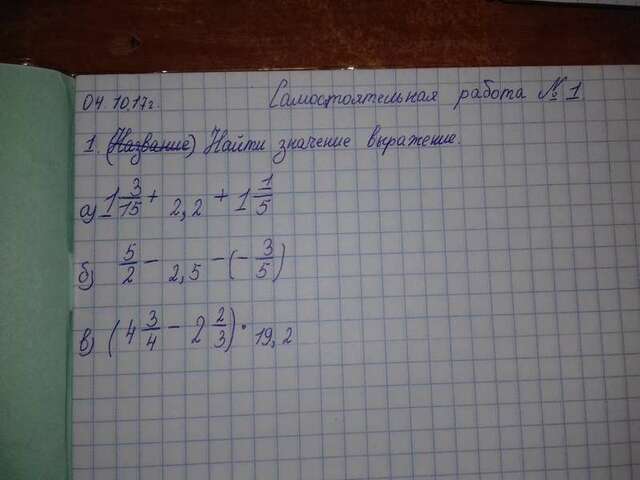 04.10.17г.
Самостоятельная работа № 1
1. (Название) Найти значение выражение.
а) -1 3/15 + 2,2 + 1 1/5
б) 5/2 - 2,5 - (-3/5)
в) (4 3/4 - 2 2/3) · 19,2